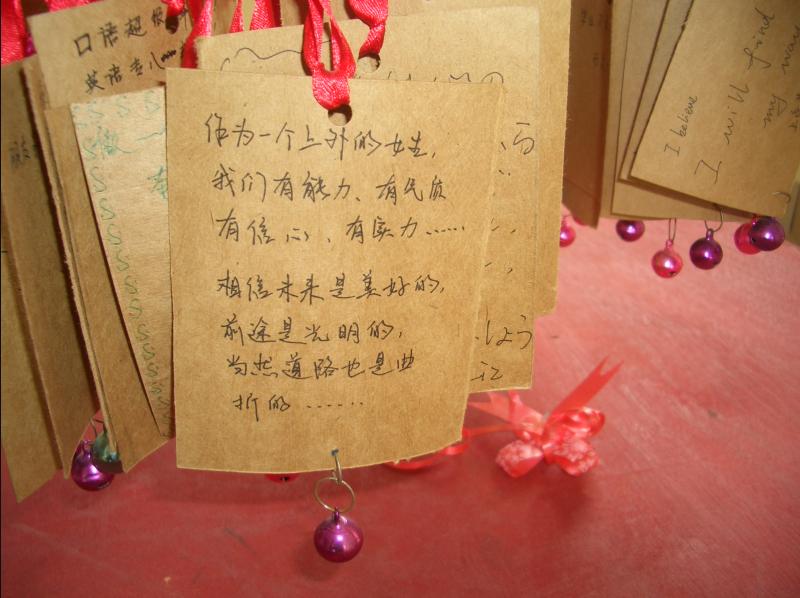 口语超级
英语专八
作为一个上外的女生,
我们有能力、有气质
有信心、有实力……
相信未来是美好的,
前途是光明的,
当然道路也是曲
折的……
しょう
I believe
I will find
my way